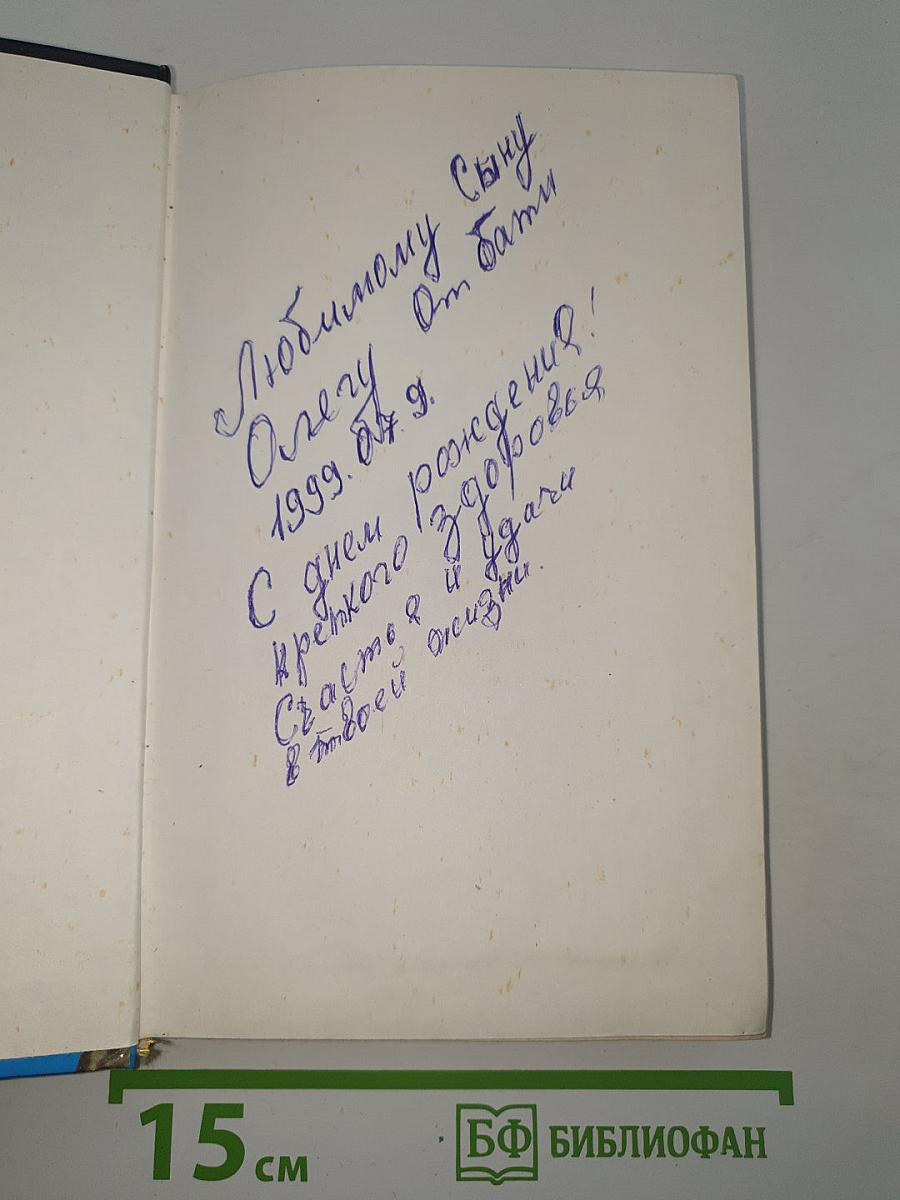 Любимому Сыну
Олегу От бати
1999. 07. 9.
С днем рождения!
крепкого здоровья
Счастья и удачи
в твоей жизни.
15 см
БФ БИБЛИОФАН